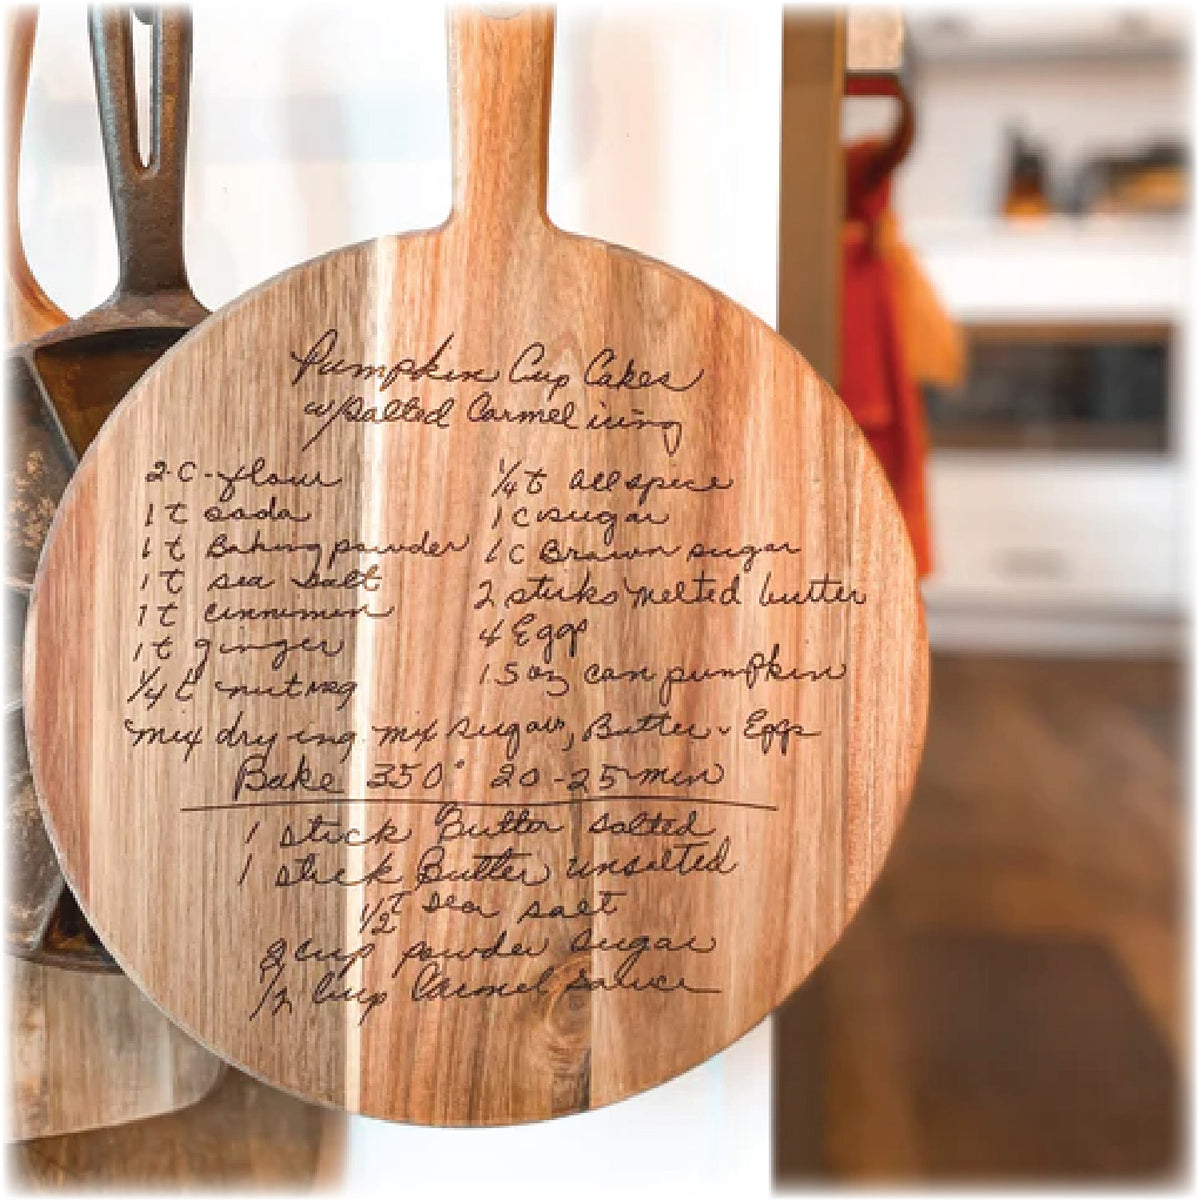 Pumpkin Cup Cakes
w/salted Carmel icing
2 C - flour
1 t soda
1 t Baking powder
1 t sea salt
1 t cinnimon
1 t ginger
1/4 t nutmeg
1/4 t allspice
1 C sugar
1 C Brown sugar
2 sticks melted butter
4 Eggs
15 oz can pumpkin
mix dry ing. mix sugars, Butter - Eggs
Bake 350° 20-25 min
1 stick Butter salted
1 stick Butter unsalted
1/2 t sea salt
8 cup powder sugar
1/2 Cup Carmel sauce